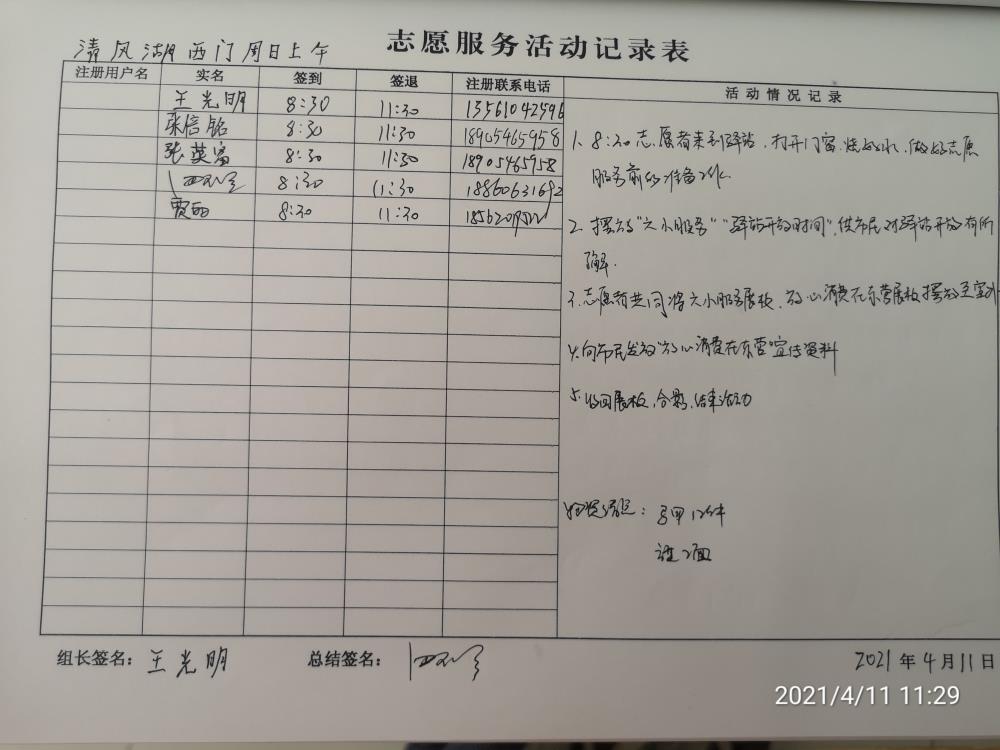 志愿服务活动记录表
清风湖西门周日上午
注册用户名 实名 签到 签退 注册联系电话 活动情况记录
王光明 8:30 11:30 13561042596
张信铭 8:30 11:30 18905465958
张英富 8:30 11:30 18905465958
8:30 11:30 18860631692
贾丽 8:30 11:30
1. 8:30志愿者来到驿站,打开门窗,烧好水,做好志愿
服务前的准备工作.
2. 摆放"六小服务""驿站开放时间",供市民对驿站开放有所
了解.
3. 志愿者共同将六小服务展板、放心消费在东营展板摆放至室外
4. 向市民发放"放心消费在东营"宣传资料
5. 收回展板,合影,结束活动
物资清点: 马甲12件
旗2面
组长签名: 王光明 总结签名: 2021年4月11日
2021/4/11 11:29